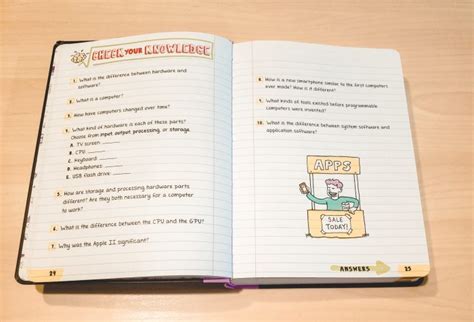 CHECK YOUR KNOWLEDGE
1. What is the difference between hardware and
software?
2. What is a computer?
3. How have computers changed over time?
4. What kind of hardware is each of these parts?
Choose from input output processing, or storage.
A. TV screen
B. CPU
C. Keyboard
D. Headphones
E. USB flash drive
5. How are storage and processing hardware parts
different? Are they both necessary for a computer
to work?
6. What is the difference between the CPU and the GPU?
7. Why was the Apple II significant?
24
8. How is a new smartphone similar to the first computers
ever made? How is it different?
9. What kinds of tools existed before programmable
computers were invented?
10. What is the difference between system software and
application software?
APPS
SALE
TODAY!
ANSWERS
25